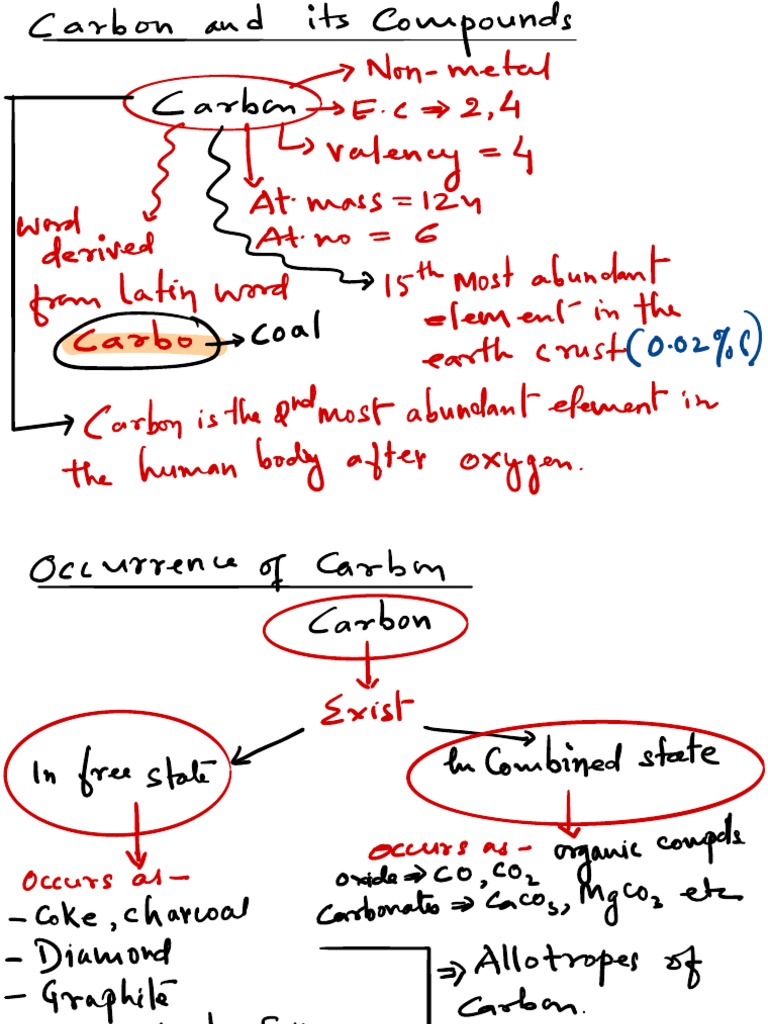 Carbon and its Compounds
Carbon
→ Non-metal
→ E.C ⇒ 2,4
→ Valency = 4
At. mass = 12u
At. no = 6
word
derived
from Latin word
Carbo → Coal
→ 15th Most abundant
element in the
earth crust (0.02%)
→ Carbon is the 2nd most abundant element in
the human body after oxygen.
Occurrence of Carbon
Carbon
Exist
In free state
In Combined state
Occurs as -
- Coke, charcoal
- Diamond
- Graphite
Occurs as - organic compds
oxide ⇒ CO, CO2
Carbonates ⇒ CaCO3, MgCO3 etc
⇒ Allotropes of
Carbon.